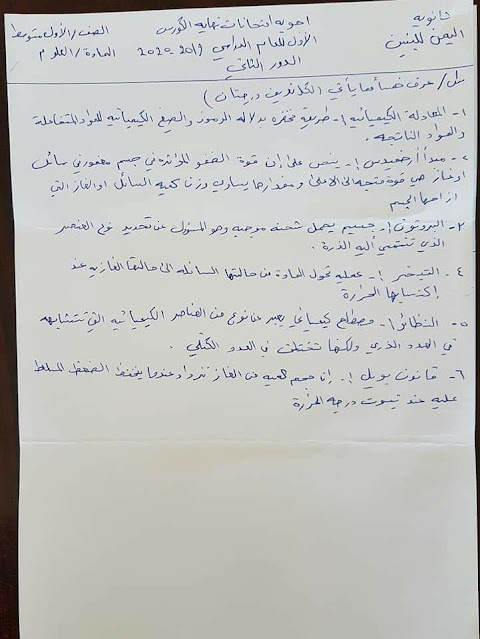 ثانوية
اليمن للبنين
اجوبه امتحانات نهايه الكورس
الأول للعام الدراسي 2019-2020
الدور الثاني
الصف/الأول متوسط
المادة/العلوم
س١/ عرف خمسأ مما يأتي (لكل تعريف درجتان)
١- المعادلة الكيميائية :- طريقة مختصره بدلاله الرموز والصيغ الكيميائيه للمواد المتفاعلة
والمواد الناتجه.
٢- مبدأ أرخميدس :- ينص على إن قوة الطفو المؤثره في جسم مغمور في سائل
او غاز هي قوة متجه الى الاعلى ومقدارها يساوي وزن كميه السائل او الغاز التي
ازاحها الجسم
٣- البروتون :- جسيم يحمل شحنه موجبه وهو المسؤول عن تحديد نوع العنصر
الذي تنتمي أليه الذرة.
٤- التبخر :- عمليه تحول المادة من حالتها السائله الى حالتها الغازيه عند
إكتسابها الحرارة
٥- النظائر :- مصطلح كيميائي يعبر عن نوع من العناصر الكيميائيه التي تتشابهه
في العدد الذري ولكنها تختلف في العدد الكتلي.
٦- قانون بويل :- إن حجم كميه من الغاز تزداد عندما ينخفظ الضغط المسلط
عليه عند ثبوت درجه الحرارة